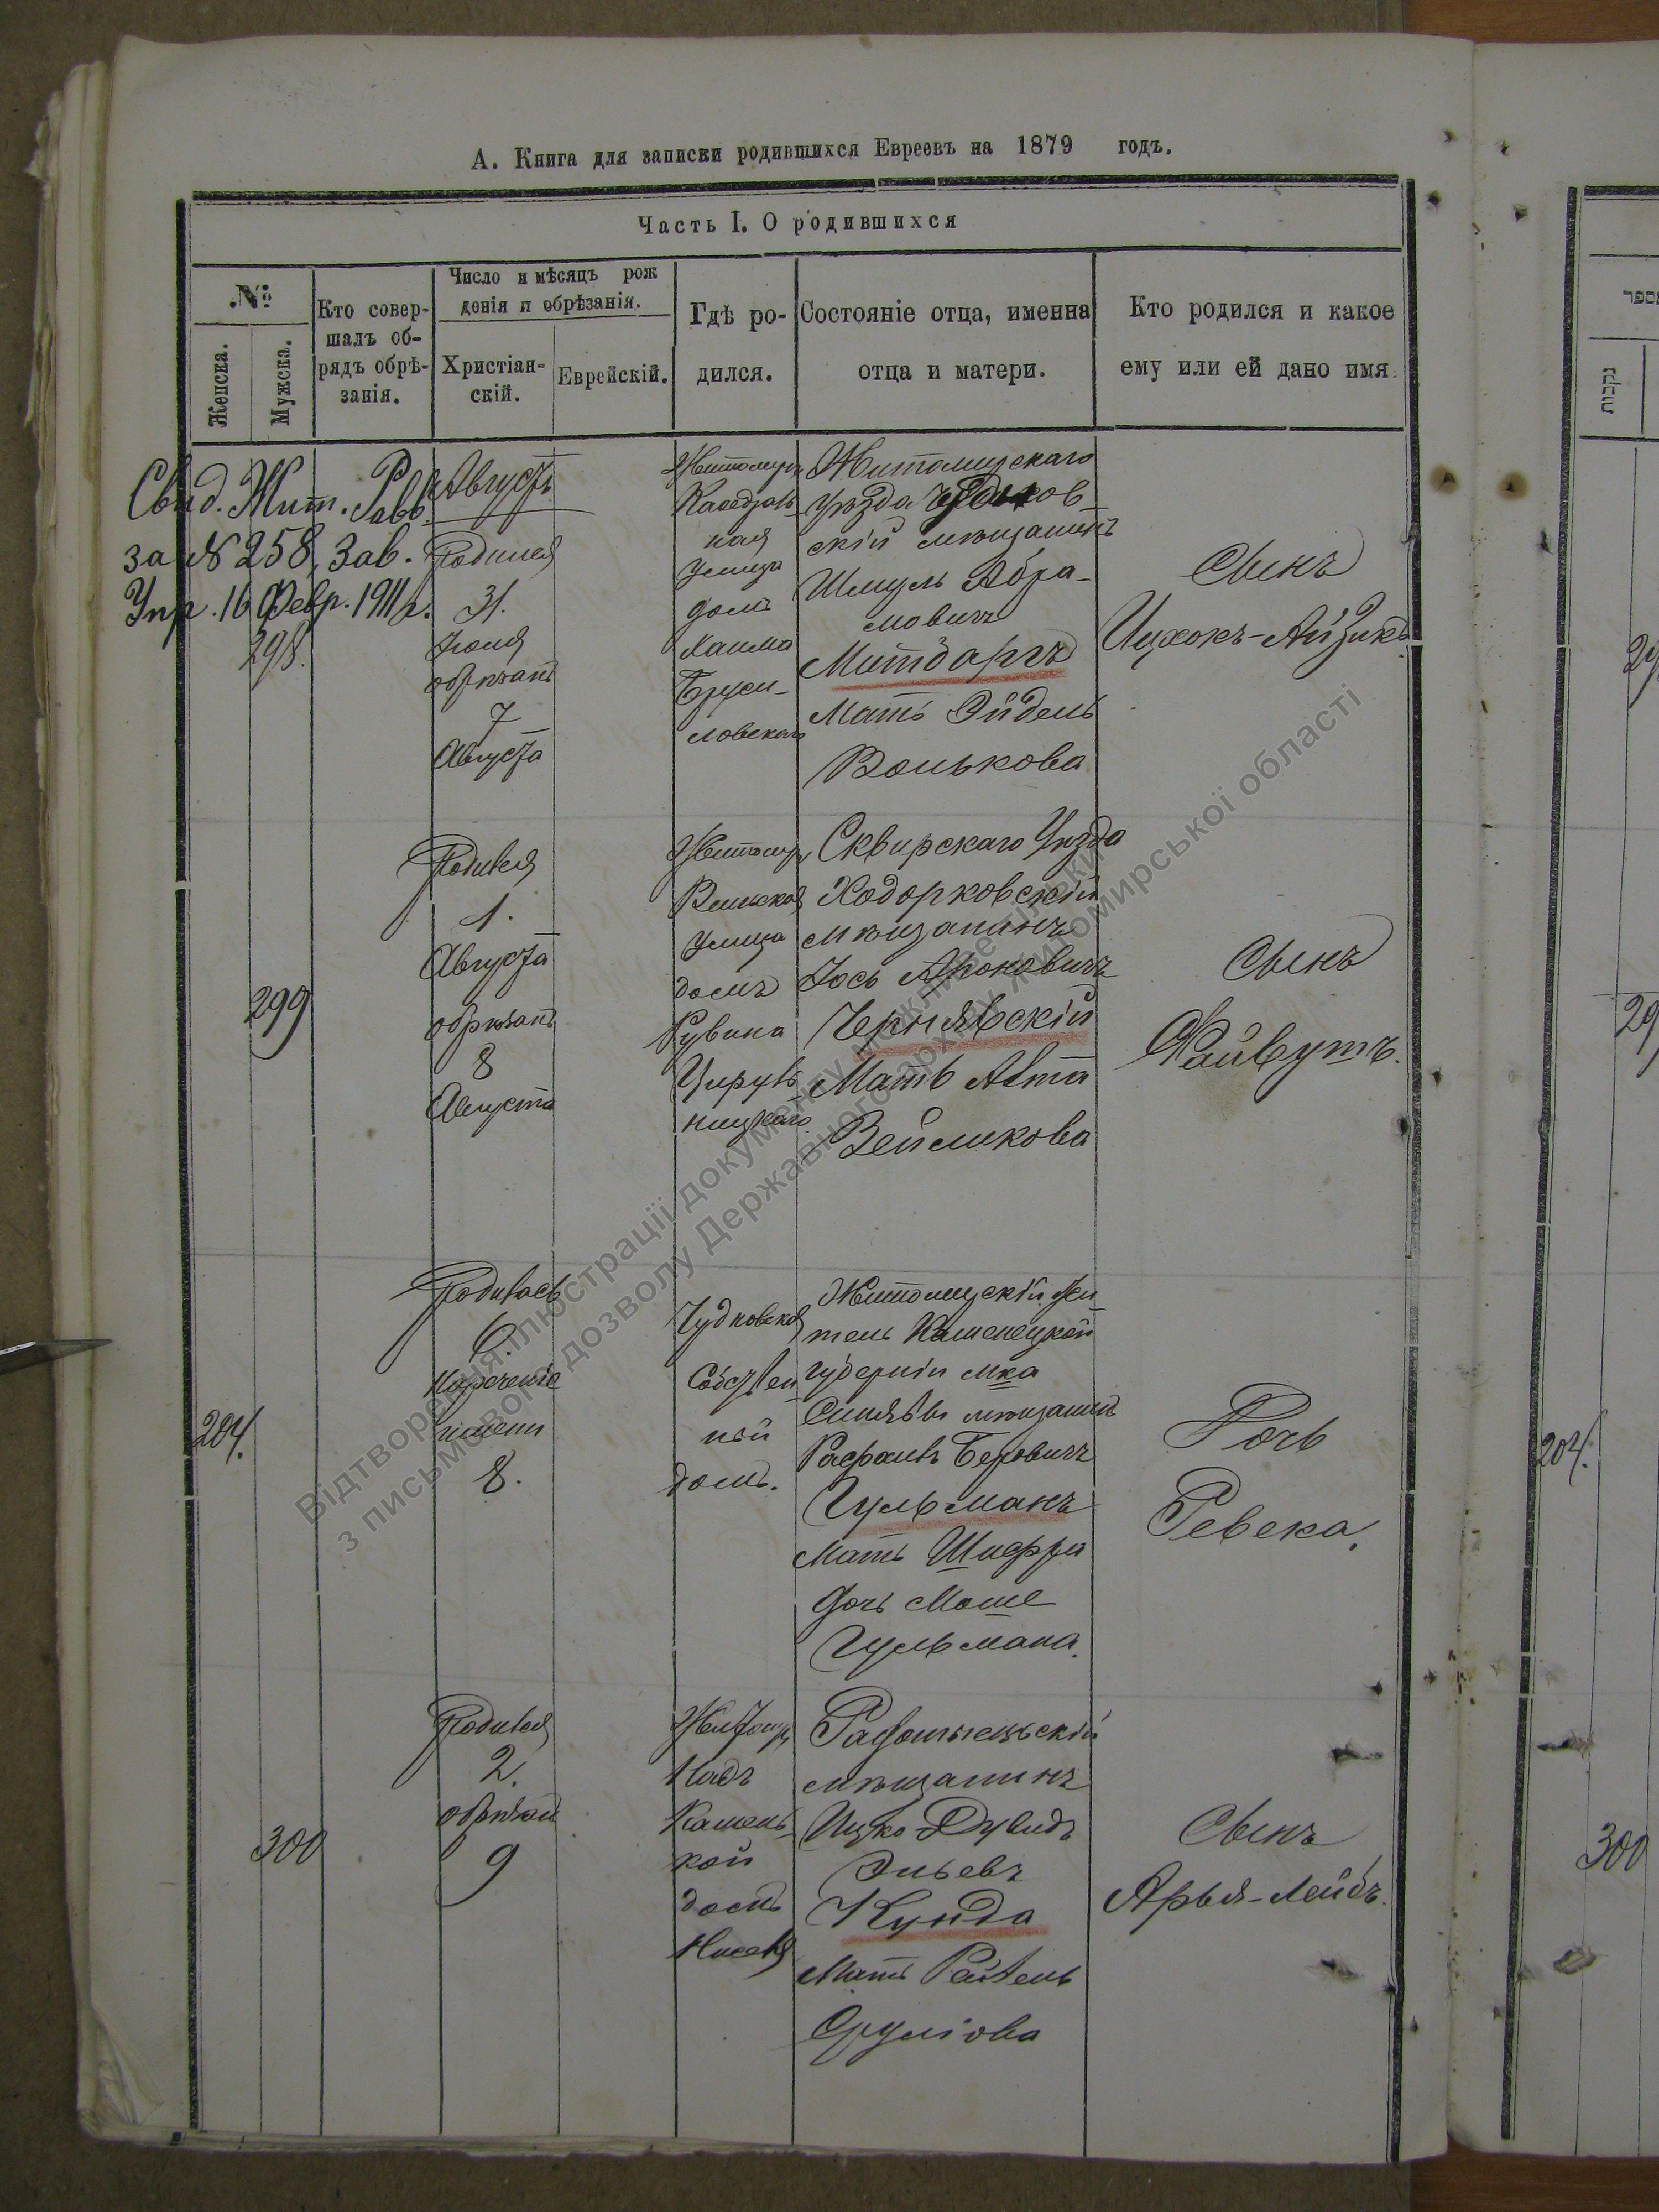 А. Книга для записки родившихся Евреевъ на 1879 годъ.
Часть I. О родившихся
№
Женска.
Мужска.
Кто совер-
шалъ об-
рядъ обрѣ-
занія.
Число и мѣсяцъ рож
денія и обрѣзанія.
Христіан-
скій.
Еврейскій.
Гдѣ ро-
дился.
Состояніе отца, именна
отца и матери.
Кто родился и какое
ему или ей дано имя.
Свид. Жит. Равв.
за № 258, Зав.
Упр. 16 Февр. 1911 г.
298.
Августъ
Родился
31.
Іюля
обрѣзанъ
7
Августа
Житомиръ
Каѳедраль-
ная
улица
домъ
Хаима
Бруси-
ловскаго
Житомирскаго
уѣзда
скій мѣщанинъ
Шмуль Абра-
мовичъ
Митдаргъ
Мать Эйдель
Волькова
Сынъ
Ицхокъ-Айзикъ.
299
Родился
1.
Августа
обрѣзанъ
8
Августа
Житомиръ
Вильская
улица
домъ
Рувина
Цируль
ницкаго
Сквирскаго Уѣзда
Ходорковскій
мѣщанинъ
Іось Ароновичъ
Чернявскій
Мать
Зейликова
Сынъ
Файвушъ.
204.
Родилась
6.
Нареченіе
имени
8.
Чудновская
Собствен
ной
домъ.
Житомирскій жи-
тель Каменецкой
губерніи мка
Синявы мѣщанинъ
Рафаилъ Беровичъ
Гульманъ
Мать Шифра
дочь Моше
Гульмана.
Дочь
Ревека.
300
Родился
2.
обрѣзанъ
9
Житомиръ
Надъ
Камень-
кой
домъ
Радомысльскій
мѣщанинъ
Ицко-Дувидъ
Эльевъ
Кунда
Мать Рейзель
Срулiова
Сынъ
Арья-Лейбъ.
מספר
נקבות
29
29
204.
300
Відтворення ілюстрації документу можливе тільки
з письмового дозволу Державного архіву Житомирської області